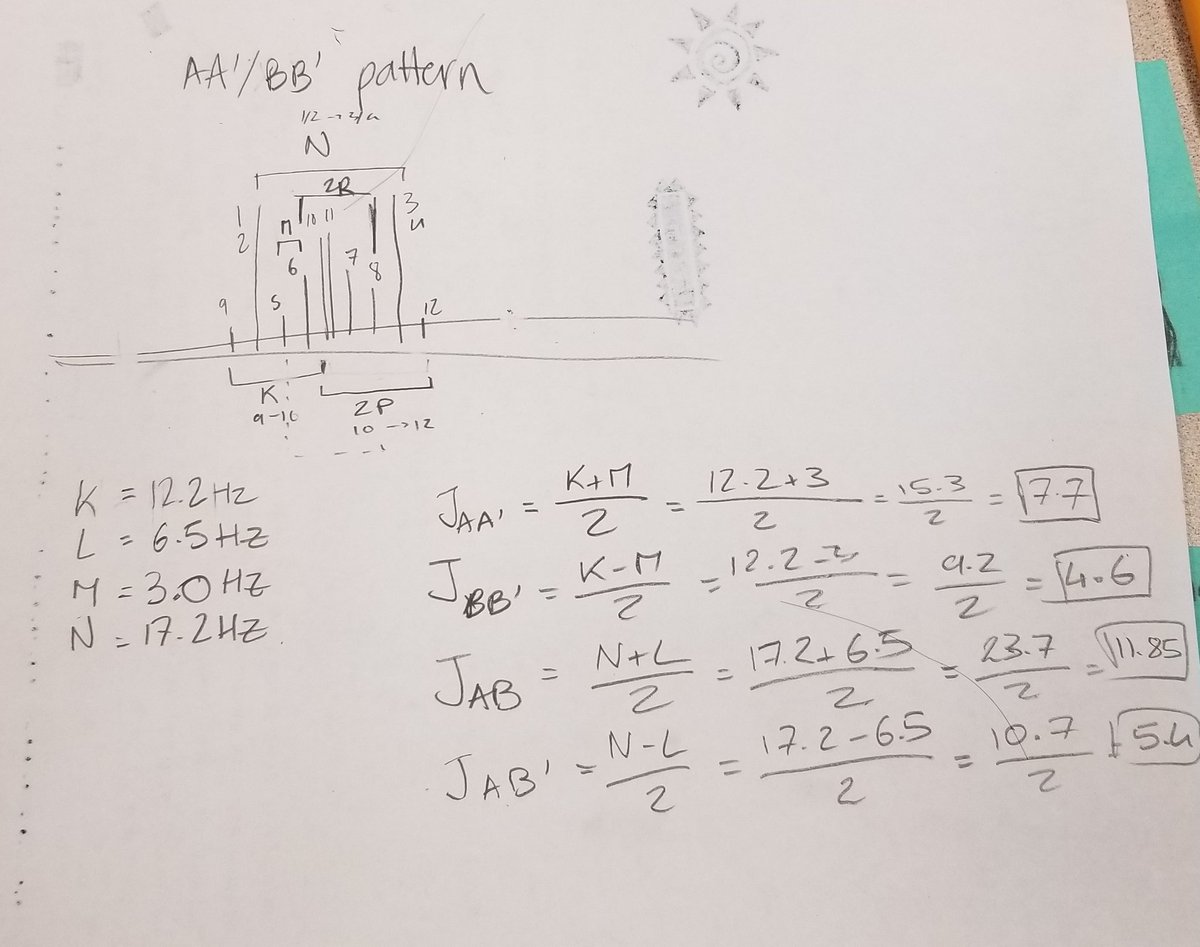 AA'/BB' pattern
N
2R
1
2
M
10 11
3
4
6
7
8
9
5
12
K
9-10
2P
10 → 12
K = 12.2 Hz
L = 6.5 HZ
M = 3.0 HZ
N = 17.2 HZ
J AA' = K+M / 2 = 12.2+3 / 2 = 15.3 / 2 = 7.7
J BB' = K-M / 2 = 12.2-3 / 2 = 9.2 / 2 = 4.6
J AB = N+L / 2 = 17.2+6.5 / 2 = 23.7 / 2 = 11.85
J AB' = N-L / 2 = 17.2-6.5 / 2 = 10.7 / 2 = 5.4